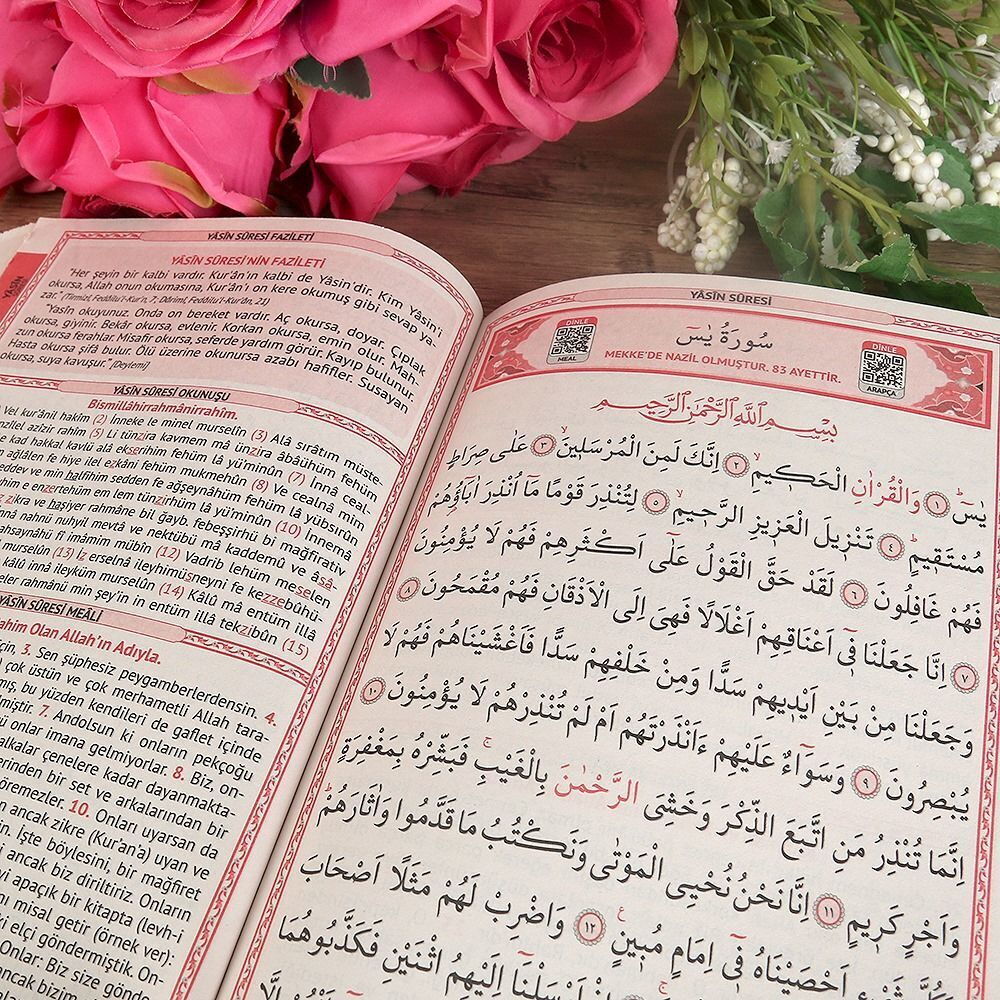 YÂSÎN SÛRESİ FAZİLETİ
YÂSÎN SÛRESİ'NİN FAZİLETİ
"Her şeyin bir kalbi vardır. Kur'ân'ın kalbi de Yâsin'dir. Kim Yâsin'i
okursa, Allah onun okumasına, Kur'ân'ı on kere okumuş gibi sevap ya-
zar." (Tirmizî, Fedâilu'l-Kur'n, 7; Dârimî, Fedâilu'l-Kur'ân, 21)
"Yasîn okuyunuz. Onda on bereket vardır. Aç okursa, doyar. Çıplak
okursa, giyinir. Bekâr okursa, evlenir. Korkan okursa, emin olur. Mah-
zun okursa ferahlar. Misafir okursa, seferde yardım görür. Kayıp bulunur.
Hasta okursa şifâ bulur. Ölü üzerine okunursa azabı hafifler. Susayan
okursa, suya kavuşur." (Deylemi)
YÂSÎN SÛRESİ OKUNUŞU
Bismillâhirrahmânirrahîm.
Vel kur'ânil hakîm (2) İnneke le minel murselîn (3) Alâ sırâtım müste-
nzîlel azîzir rahîm (5) Li tünzira kavmem mâ ünzira âbâühüm fehüm
e kad hakkal kavlü alâ ekserihim fehüm lâ yü'minûn (7) İnnâ ceal-
ağlâlen fe hiye ilel ezkâni fehüm mukmehûn (8) Ve cealnâ mim
seddev ve min halfihim sedden fe ağşeynâhüm fehüm lâ yübsırûn
yhim e enzertehüm em lem tünzirhüm lâ yü'minûn (10) İnnemâ
z zikra ve haşiyer rahmâne bil ğayb, febeşşirhü bi mağfirativ
nnâ nahnü nuhyil mevtâ ve nektübü mâ kaddemû ve âsâ-
ahsaynâhü fî imâmim mübîn (12) Vadrib lehüm meselen
murselûn (13) İz erselnâ ileyhimüsneyni fe kezzebûhü-
kâlû innâ ileyküm murselûn (14) Kâlû mâ entüm illâ
zeler rahmânü min şey'in in entüm illâ tekzibûn (15)
YÂSÎN SÛRESİ MEÂLİ
ahim Olan Allah'ın Adıyla.
için, 3. Sen şüphesiz peygamberlerdensin. 4.
çok üstün ve çok merhametli Allah tara-
mış, bu yüzden kendileri de gaflet içinde
miştir. 7. Andolsun ki onların pekçoğu
ü onlar imana gelmiyorlar. 8. Biz, on-
alkalar çenelere kadar dayanmakta-
erinden bir set ve arkalarından bir
öremezler. 10. Onları uyarsan da
n ancak zikre (Kur'an'a) uyan ve
in. İşte böylesini, bir mağfiret
i ancak biz diriltiriz. Onların
yi apaçık bir kitapta (levh-i
nı misal getir (örnek ver):
ki elçi göndermiştik. On-
Onlar: Biz size gönde
ancak bizim
YÂSÎN SÛRESİ
DİNLE
MEAL
سورة يس
MEKKE'DE NAZİL OLMUŞTUR. 83 AYETTİR.
DİNLE
ARAPÇA
بِسْمِ اللّٰهِ الرَّحْمٰنِ الرَّحِيمِ
يٰسٓ ﴿١﴾ وَالْقُرْاٰنِ الْحَكِيمِ ﴿٢﴾ اِنَّكَ لَمِنَ الْمُرْسَلِينَ ﴿٣﴾ عَلٰى صِرَاطٍ
مُسْتَقِيمٍ ﴿٤﴾ تَنْزِيلَ الْعَزِيزِ الرَّحِيمِ ﴿٥﴾ لِتُنْذِرَ قَوْمًا مَٓا اُنْذِرَ اٰبَٓاؤُهُمْ
فَهُمْ غَافِلُونَ ﴿٦﴾ لَقَدْ حَقَّ الْقَوْلُ عَلٰٓى اَكْثَرِهِمْ فَهُمْ لَا يُؤْمِنُونَ
﴿٧﴾ اِنَّا جَعَلْنَا فٓى اَعْنَاقِهِمْ اَغْلَالًا فَهِىَ اِلَى الْاَذْقَانِ فَهُمْ مُقْمَحُونَ ﴿٨﴾
وَجَعَلْنَا مِنْ بَيْنِ اَيْدِيهِمْ سَدًّا وَمِنْ خَلْفِهِمْ سَدًّا فَاَغْشَيْنَاهُمْ فَهُمْ لَا
يُبْصِرُونَ ﴿٩﴾ وَسَوَٓاءٌ عَلَيْهِمْ ءَاَنْذَرْتَهُمْ اَمْ لَمْ تُنْذِرْهُمْ لَا يُؤْمِنُونَ ﴿١٠﴾
اِنَّمَا تُنْذِرُ مَنِ اتَّبَعَ الذِّكْرَ وَخَشِىَ الرَّحْمٰنَ بِالْغَيْبِ فَبَشِّرْهُ بِمَغْفِرَةٍ
وَاَجْرٍ كَرِيمٍ ﴿١١﴾ اِنَّا نَحْنُ نُحْيِى الْمَوْتٰى وَنَكْتُبُ مَا قَدَّمُوا وَاٰثَارَهُمْ
وَكُلَّ شَىْءٍ اَحْصَيْنَاهُ فٓى اِمَامٍ مُبِينٍ ﴿١٢﴾ وَاضْرِبْ لَهُمْ مَثَلًا اَصْحَابَ
اَرْسَلْنَٓا اِلَيْهِمُ اثْنَيْنِ فَكَذَّبُوهُمَا